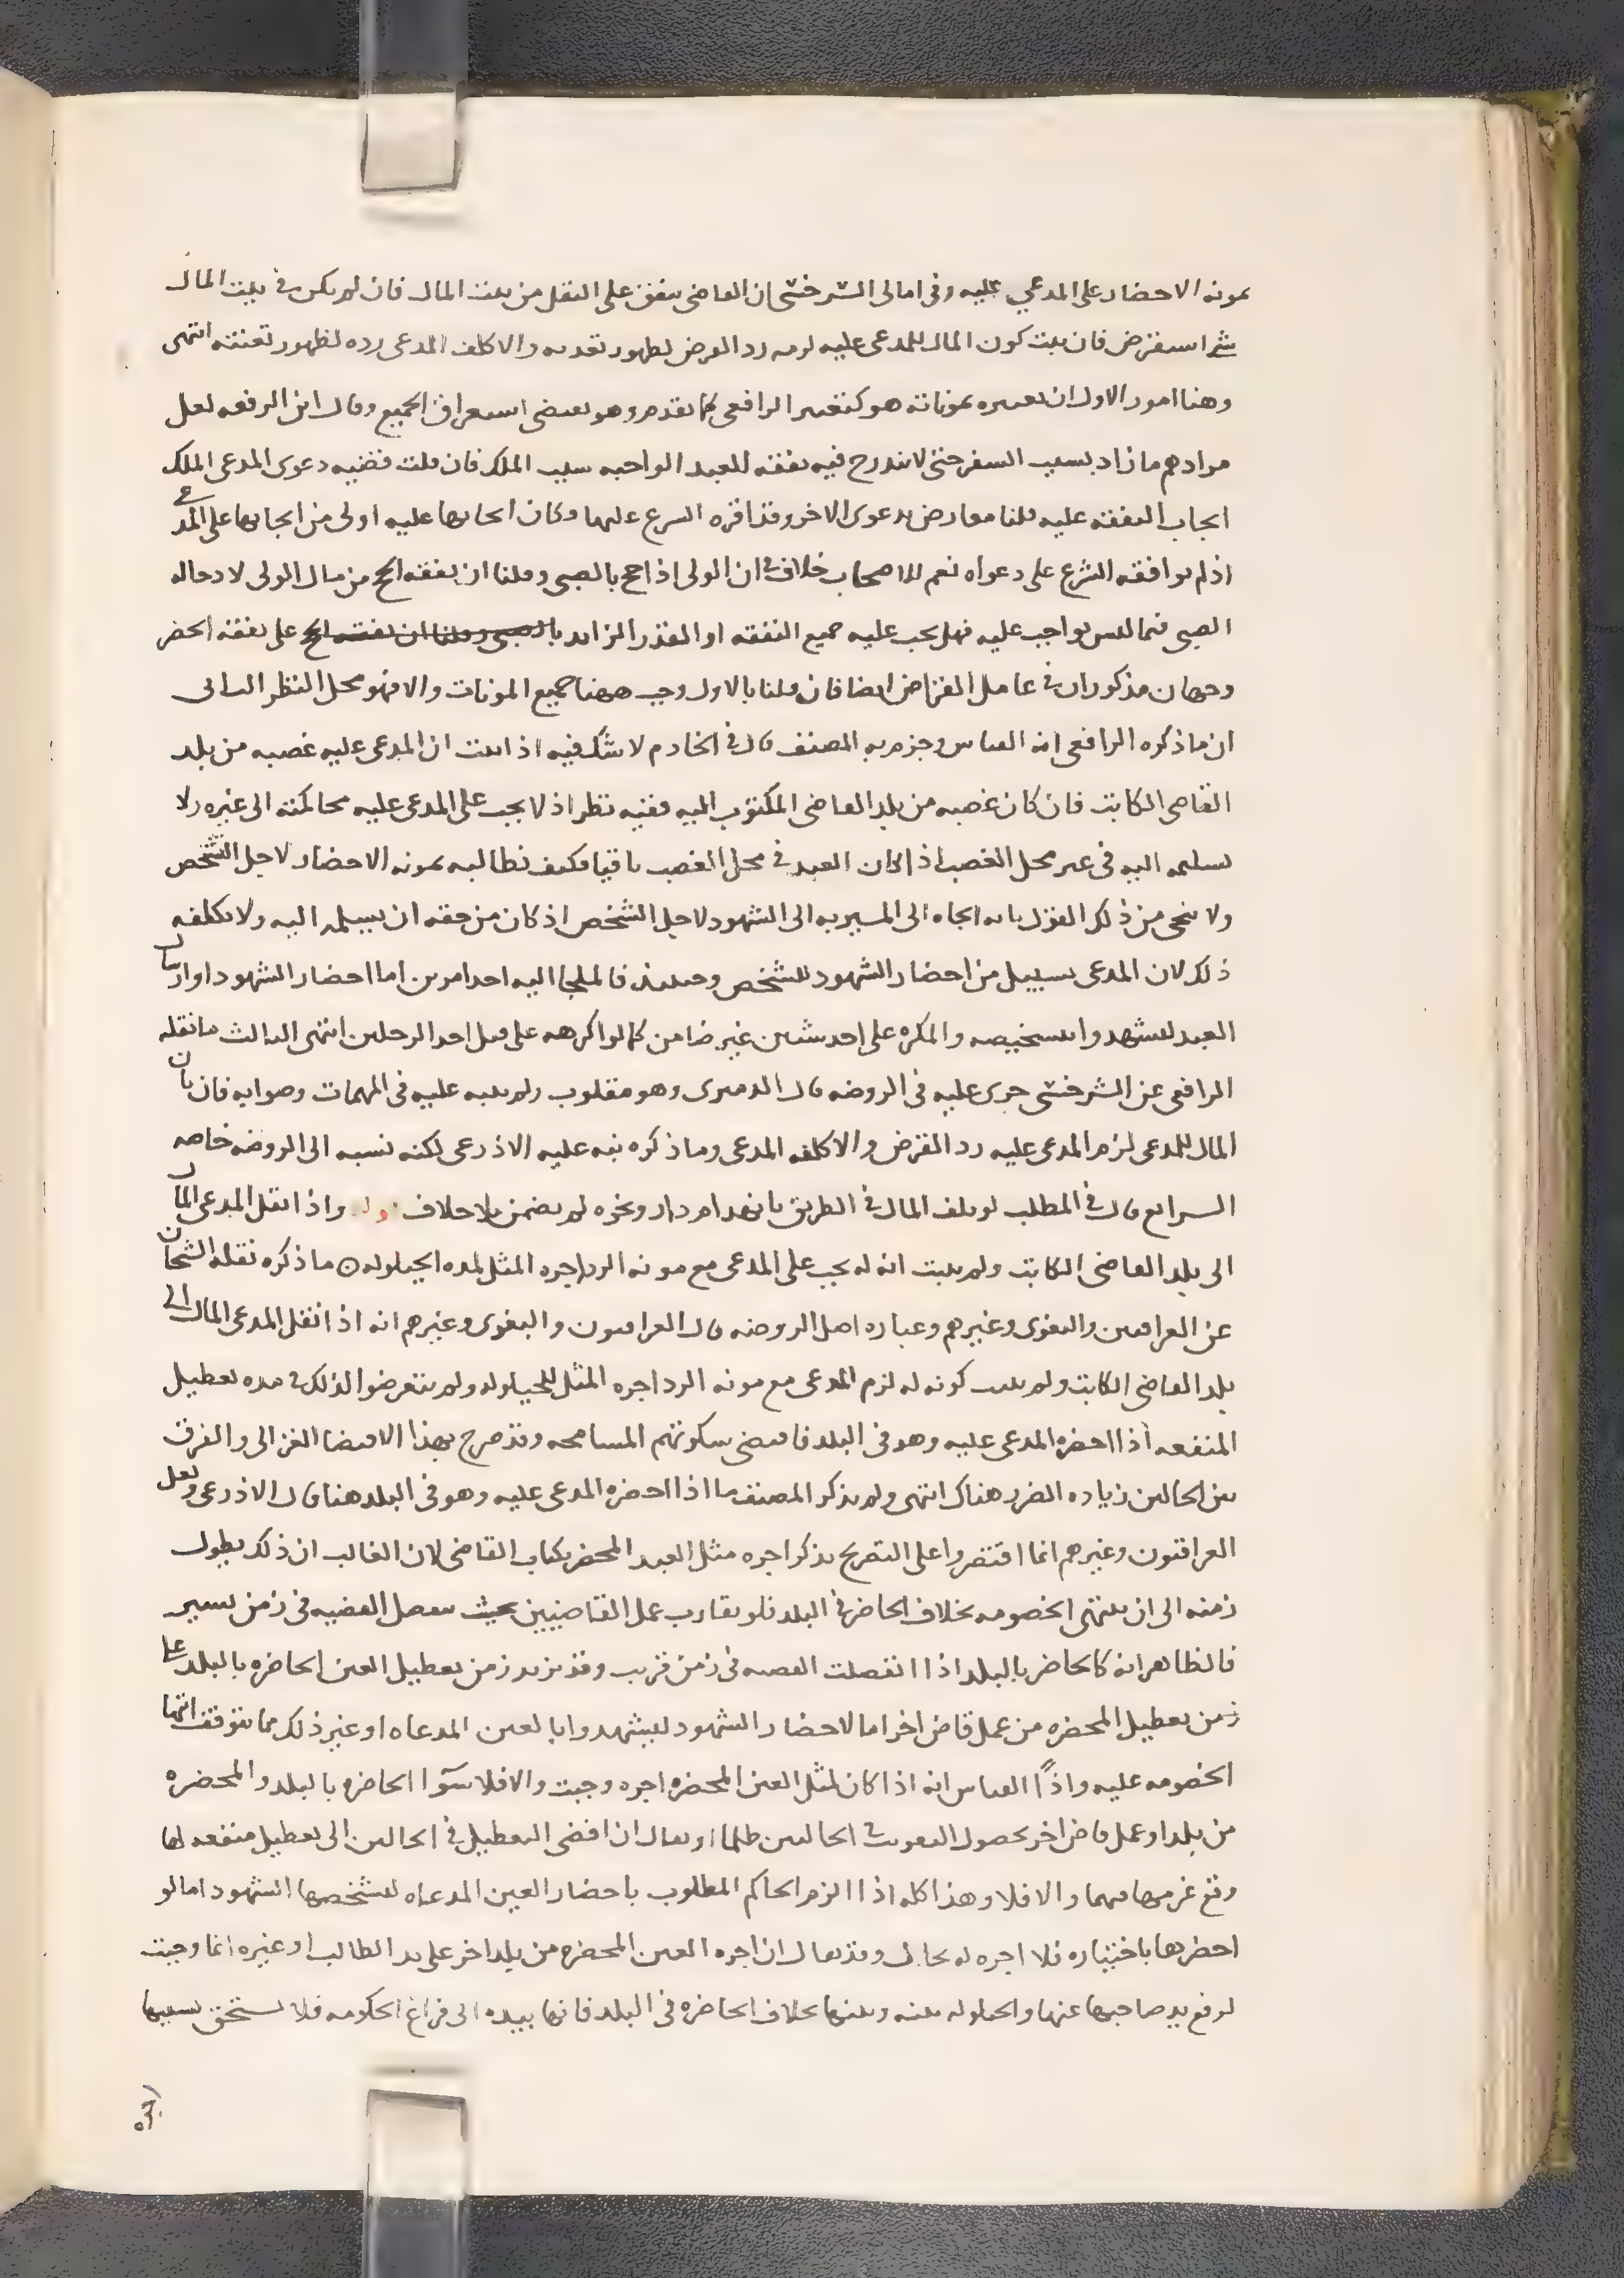 بمونه الاحضار على المدعي عليه وفى امالى السرخسى ان القاضى ينفق على النقل من بيت المال فان لم يكن فى بيت المال
شى استقرض فان ثبت كون المال للمدعى عليه لزمه رد القرض لظهور تعديه والا كلف المدعى رده لظهور تعنته انتهى
وهنا امور الاول ان تعبيره بموناته هو كتعبير الرافعى كما تقدم وهو يقتضى استغراق الجميع وقال ابن الرفعه لعل
مرادهم ما زاد بسبب السفر حتى لا تندرج فيه نفقه العبد الواجبه بسبب الملك فان قلت قضيه دعوى المدعى الملك
ايجاب النفقه عليه قلنا معارض بدعوى الاخر وقد اقره الشرع عليها وكان ايجابها عليه اولى من ايجابها على المدعى
اذ لم يوافقه الشرع على دعواه نعم للاصحاب خلاف فى ان الولى اذا حج بالصبى وقلنا ان نفقه الحج من مال الولى لادخاله
الصبى فيما ليس بواجب عليه فهل يجب عليه جميع النفقه او القدر الزايد على نفقه الحضر
وجهان مذكوران فى عامل القراض ايضا فان قلنا بالاول وجب ههنا جميع المونات والا فهو محل النظر الثانى
ان ما ذكره الرافعى انه القياس وجزم به المصنف قال فى الخادم لا شك فيه اذا اثبت ان المدعى عليه غصبه من بلد
القاضى الكاتب فان كان غصبه من بلد القاضى المكتوب اليه ففيه نظر اذ لا يجب على المدعى عليه محاكمته الى غيره ولا
تسليمه اليه فى غير محل الغصب اذا كان العبد فى محل الغصب باقيا فكيف نطالبه بمونه الاحضار لاجل الشخص
ولا ينجى من ذلك القول بانه الجاه الى المسير به الى الشهود لاجل الشخص اذ كان من حقه ان يسلمه اليه ولا يكلفه
ذلك لان المدعى بسبيل من احضار الشهود للشخص وحينئذ فالملجا اليه احد امرين اما احضار الشهود او ارسال
العبد ليشهدوا بتشخيصه والمكره على احد شيئين غير ضامن كما لو اكرهه على قتل احد الرجلين انتهى الثالث ما نقله
الرافعى عن السرخسى جرى عليه فى الروضه قال الدميرى وهو مقلوب ولم ينبه عليه فى المهمات وصوابه فان بان
المال للمدعى لزم المدعى عليه رد القرض والا كلفه المدعى وما ذكره نبه عليه الاذرعى لكنه نسبه الى الروضه خاصه
الرابع قال فى المطلب لو تلف المال فى الطريق بانهدام دار ونحوه لم يضمن بلا خلاف قوله واذا نقل المدعى المال
الى بلد القاضى الكاتب ولم يثبت انه له يجب على المدعى مع مونه الرد اجره المثل لمده الحيلوله ما ذكره نقله الشيخان
عن العراقيين والبغوى وغيرهم وعباره اصل الروضه قال العراقيون والبغوى وغيرهم انه اذا نقل المدعى المال الى
بلد القاضى الكاتب ولم يثبت كونه له لزم المدعى مع مونه الرد اجره المثل للحيلوله ولم يتعرضوا لذلك فى مده تعطيل
المنفعه اذا احضره المدعى عليه وهو فى البلد فاقتضى سكوتهم المسامحه وقد صرح بهذا الاقتضا الغزالى والفرق
بين الحالين زياده الضرر هناك انتهى ولم يذكر المصنف ما اذا احضره المدعى عليه وهو فى البلد هنا قال الاذرعى ولعل
العراقيون وغيرهم انما اقتصروا على التصريح بذكر اجره مثل العبد المحضر بكتاب القاضى لان الغالب ان ذلك يطول
زمنه الى ان تنتهى الخصومه بخلاف الحاضر فى البلد فلو تقارب عمل القاضيين بحيث تنفصل القضيه فى زمن يسير
فالظاهر انه كالحاضر بالبلد اذا انفصلت القضيه فى زمن قريب وقد يزيد زمن تعطيل العين الحاضره بالبلد على
زمن تعطيل المحضره من عمل قاض اخر اما لاحضار الشهود ليشهدوا بالعين المدعاه او غير ذلك مما يتوقف انتها
الخصومه عليه واذًا القياس انه اذا كان لمثل العين المحضره اجره وجبت والا فلا سوآ الحاضره بالبلد والمحضره
من بلد او عمل قاض اخر بحصول التفويت فى الحالتين ظلما او يقال ان افضى التعطيل فى الحالين الى تعطيل منفعه لها
وقع غرمها فيهما والا فلا وهذا كله اذا الزم الحاكم المطلوب باحضار العين المدعاه لتشخصها الشهود اما لو
احضرها باختياره فلا اجره له بحال وقد يقال ان اجره العين المحضره من بلد اخر على يد الطالب او غيره انما وجبت
لرفع يد صاحبها عنها والحيلوله بينه وبينها بخلاف الحاضره فى البلد فانها بيده الى فراغ الحكومه فلا تستحق بسببها
اجره